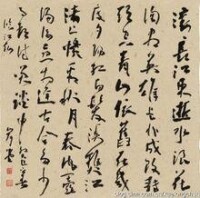 滚滚長江東逝水浪花
淘尽英雄是非成敗轉
頭空青山依舊在幾
度夕陽紅白髮漁樵江
渚上慣看秋月春風一壺
濁酒喜相逢古今多少
事都付笑談中
臨江仙